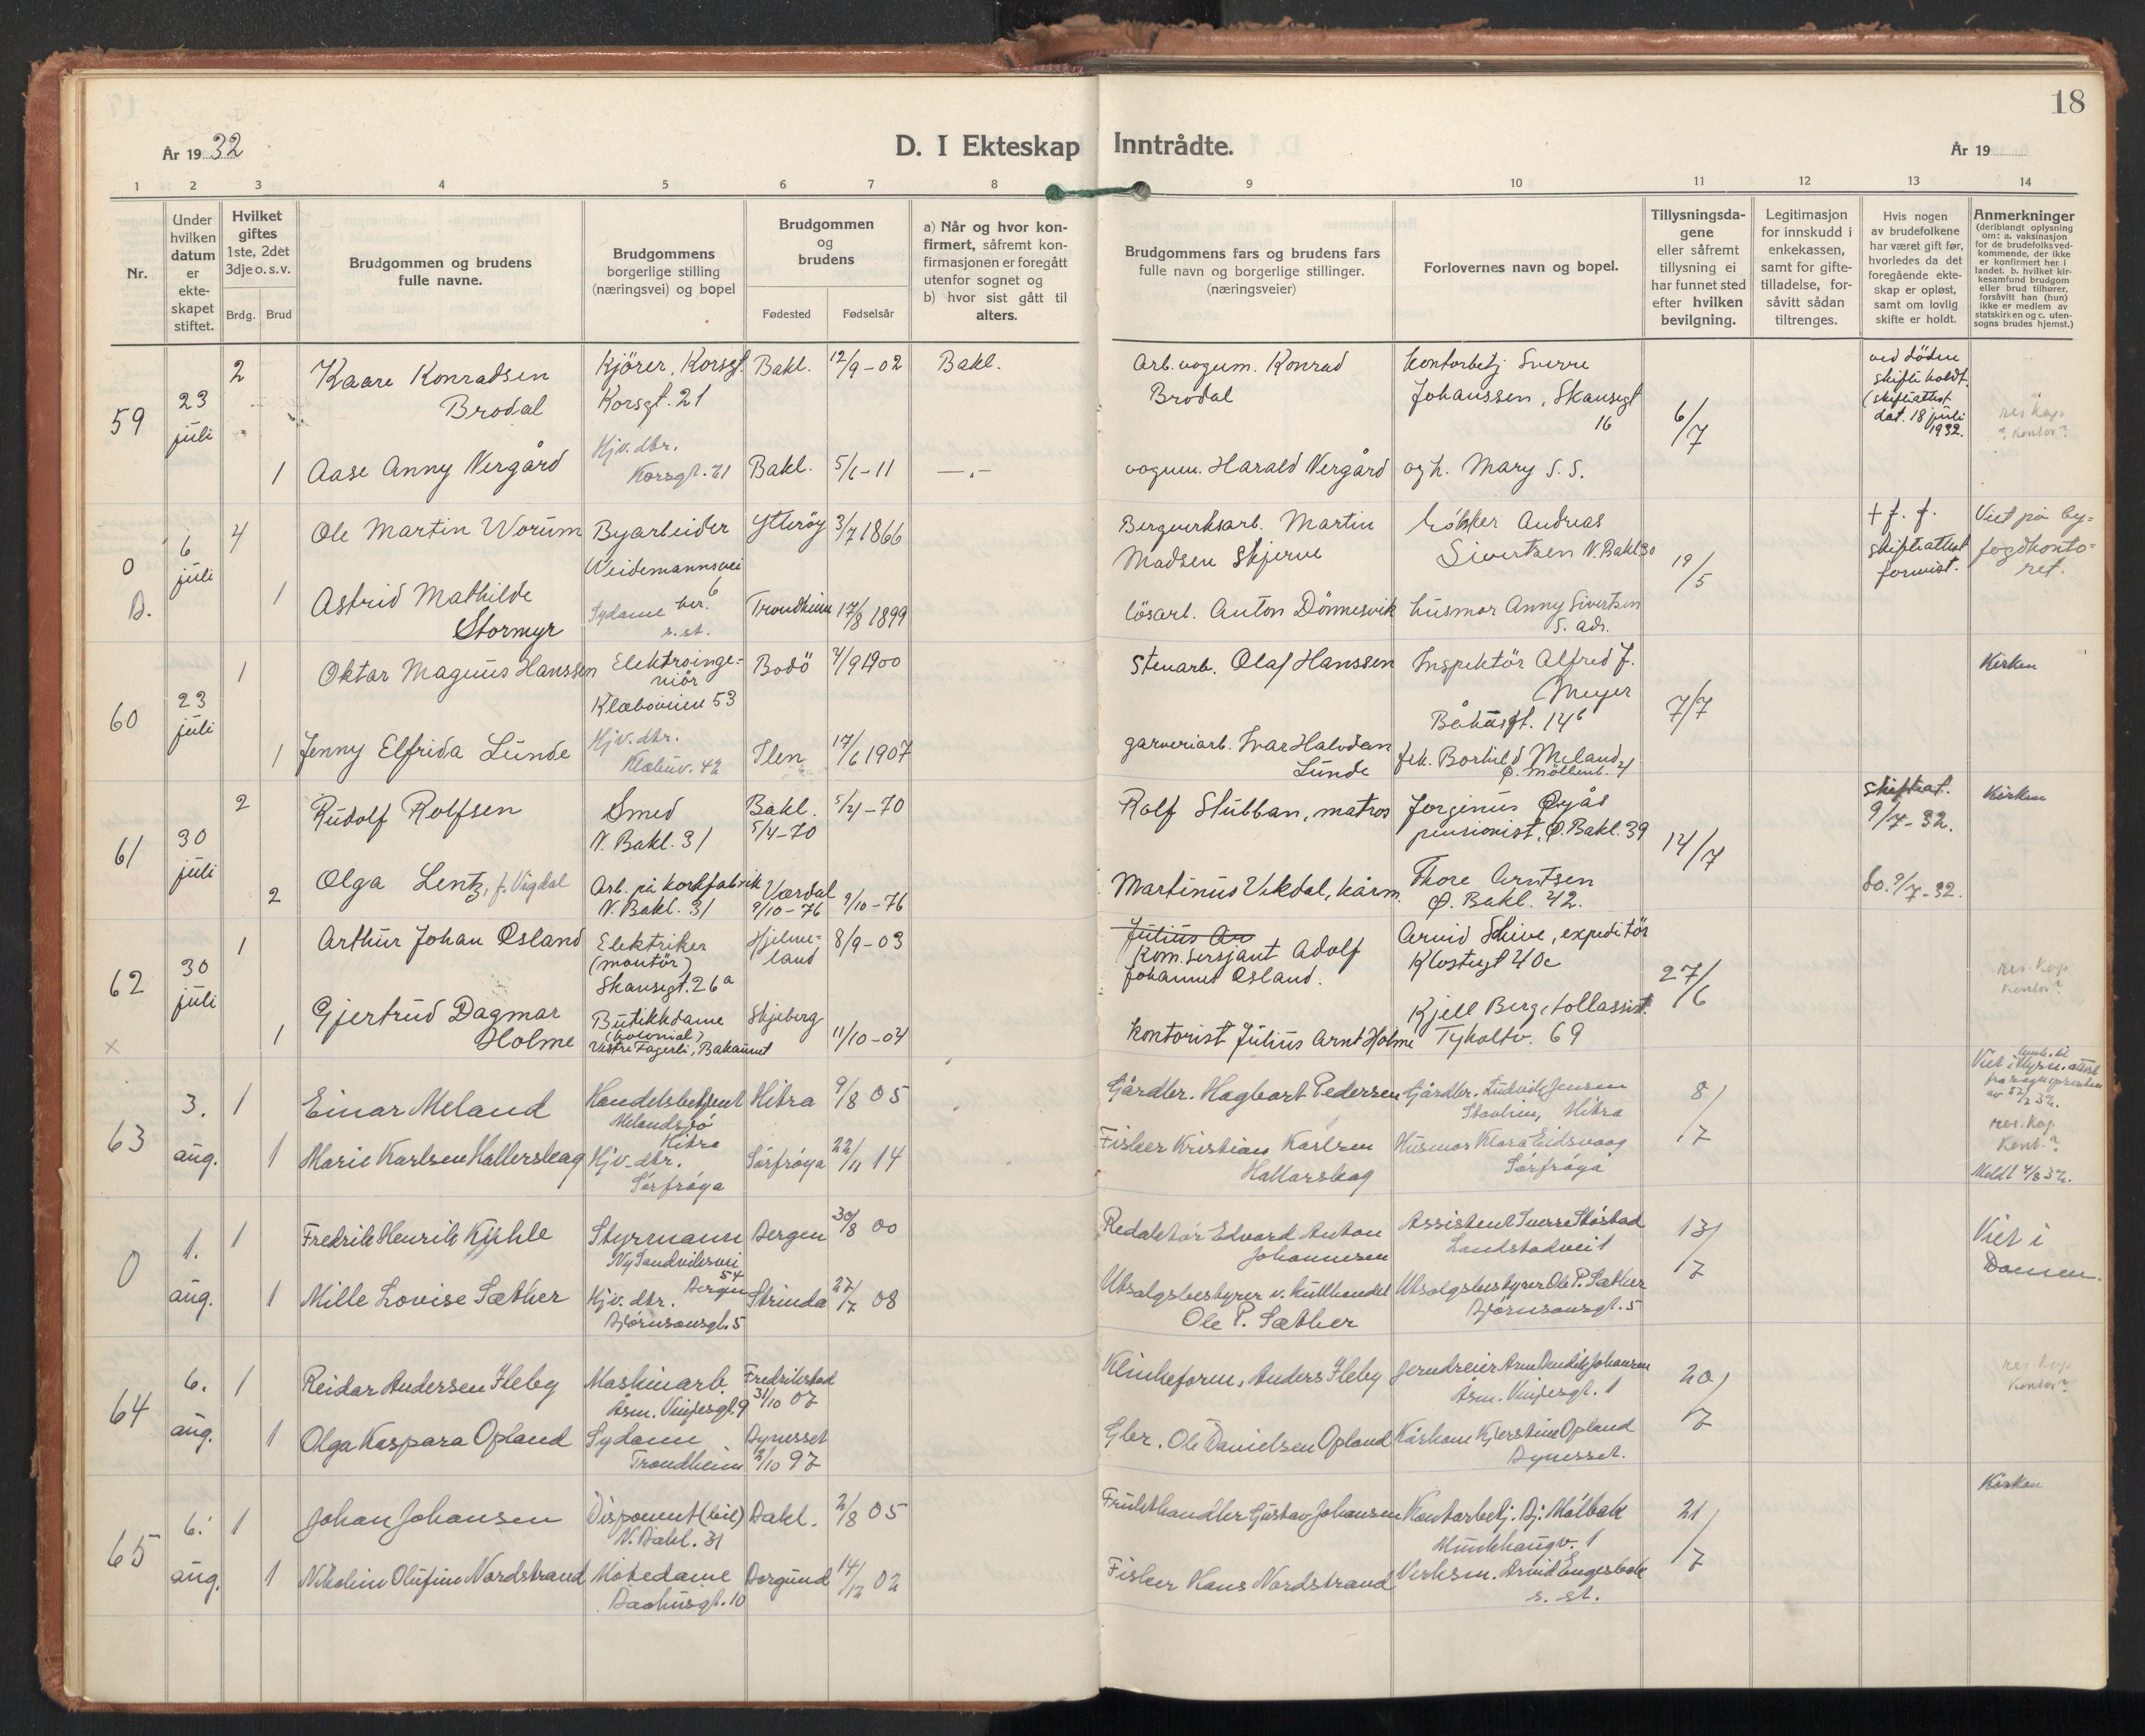 18
År 19 32
D. I Ekteskap Inntrådte.
År 19
1 2 3 4 5 6 7 8 9 10 11 12 13 14
Nr.
Under hvilken datum er ekte-skapet stiftet.
Hvilket giftes 1ste, 2det 3dje o. s. v.
Brdg. Brud
Brudgommen og brudens fulle navne.
Brudgommens borgerlige stilling (næringsvei) og bopel
Brudgommen og brudens
Fødested Fødselsår
a) Når og hvor kon-firmert, såfremt kon-firmasjonen er foregått utenfor sognet og b) hvor sist gått til alters.
Brudgommens fars og brudens fars fulle navn og borgerlige stillinger. (næringsveier)
Forlovernes navn og bopel.
Tillysningsda-gene eller såfremt tillysning ei har funnet sted efter hvilken bevilgning.
Legitimasjon for innskudd i enkekassen, samt for gifte-tilladelse, for-såvitt sådan tiltrenges.
Hvis nogen av brudefolkene har været gift før, hvorledes da det foregående ekte-skap er opløst, samt om lovlig skifte er holdt.
Anmerkninger (deriblandt oplysning om: a. vaksinasjon for de brudefolks ved-kommende, der ikke er konfirmert her i landet. b. hvilket kir-kesamfund brudgom eller brud tilhører, forsåvitt han (hun) ikke er medlem av statskirken og c. uten-sogns brudes hjemst.)
59 23 juli 2 Kaare Konradsen Brodal Kjörer, Korsgt. Korsgt. 21 Bakl. 12/9-02 Bakl. Arb. vognm. Konrad Brodal Kontorbetj Sverre Johanssen, Skansegt 16 6/7 ved döden skifte holdt. (skifteattest dat. 18 juli 1932. res kap. ? Kontor?
1 Aase Anny Vergård Hjv. dtr. Korsgt. 21 Bakl. 5/6-11 —„— vognm. Harald Vergård og h. Mary s. s.
0 D. 6 juli 4 Ole Martin Worum Byarbeider Weidemannsvei 6 Ytteröy 3/7 1866 Bergverksarb. Martin Madsen Skjerve Andreas Sivertsen N. Bakl 30 19/5 + f. f. skifteattest forevist. Viet på by=fogdkonto=ret.
1 Astrid Mathilde Stormyr Sydame her. s. st. Trondheim 17/8 1899 lösarb. Anton Dönnesvik husmor Anny Sivertsen s. ads.
60 23 juli 1 Oktar Magnus Hanssen Elektroinge=niör Klæbuveien 53 Bodö 4/9 1900 Stenarb. Olaf Hanssen Inspektör Alfred J. Meyer 14 b 7/7 Kirken
1 Jenny Elfrida Lunde Hjv. dtr. Klæbuv. 42 Ilen 17/6 1907 garveriarb. Ivar Halvdan Lunde frk. Borhild Meland, Ø. Möllenb. 4
61 30 juli 2 Rudolf Rolfsen Smed N. Bakl. 31 Bakl. 5/4-70 5/4-70 Rolf Stubban, matros Jorginus Øyås pensionist, Ø. Bakl. 39 14/7 Skifteat. 9/7-32. Kirken
2 Olga Lentz, f. Vigdal Arb. på korkfabrik N. Bakl. 31 Værdal 9/10-76 9/10-76 Martinus Vikdal, kårm. Thore Arntsen Ø. Bakl. 42. do. 9/7-32.
62 30 juli 1 Arthur Johan Østland Elektriker (montör) Skansegt. 26 a Hjelme-land 8/9-03 Julius Ar Kom. sersjant Adolf Johannes Østland. Arvid Skive, expeditör Klostergt 40c 27/6 res. kap. Kontor?
× 1 Gjertrud Dagmar Holme Butikkdame (kolonial) Vestre Fagerli, Bakaunet Skjeberg 11/10-04 Kontorist Julius Arnt Holme Kjell Berg, tollassist. Tyholtv. 69
63 3. aug. 1 Einar Meland Handelsbetjent Melandsjö Hitra Hitra 9/8 05 Gårdbr. Hagbart Pedersen Gårdbr. Ludvik Jensen Hitra 8/7 res. kap. Kont.? Meldt 4/8 32.
1 Marie Karlsen Hallerskag Hjv. dtr. Sörfröya Sörfröya 22/11 14 Fisker Kristian Karlsen Hallarskag Husmor Klara Eidsvaag Sörfröya
0 1. aug. 1 Fredrik Henrik Kyhle Styrmann Ny Sandviksvei 54 Bergen Bergen 30/8 00 Redaktör Edvard Anton Johannesen Assistent Sverre Skårstad Landstadvei 1 13/7 Viet i Domen.
1 Mille Lovise Sæther Hjv. dtr. Björnsonsgt. 5 Strinda 27/7 08 Utsalgsbestyrer v. kullhandel Ole P. Sæther Utsalgsbestyrer Ole P. Sæther Björnsonsgt. 5
64 6. aug. 1 Reidar Andersen Hleby Maskinarb. Åsm. Vinjesgt. 9 Fredrikstad 31/10 07 Anders Hleby Jerndreier Johansen Åsm. Vinjesgt. 1 20/7 res. kap. Kontor?
1 Olga Kaspara Opland Sydame Trondheim Bynesset 2/10 97 Gbr. Ole Danielsen Opland Kårkone Kjerstine Opland Bynesset.
65 6. aug. 1 Johan Johansen Disponent (bil) N. Bakl. 31 Bakl. 2/8 05 Frukthandler Gustav Johansen Kontorbetj. Bj. Målbak Munkhaugv. 1 21/7 Kirken
1 Nikoline Olufine Nordstrand Motedame Bakhusgt. 10 Borgund 14/12 02 Fisker Hans Nordstrand Verksm. Arvid Engesbak s. st.